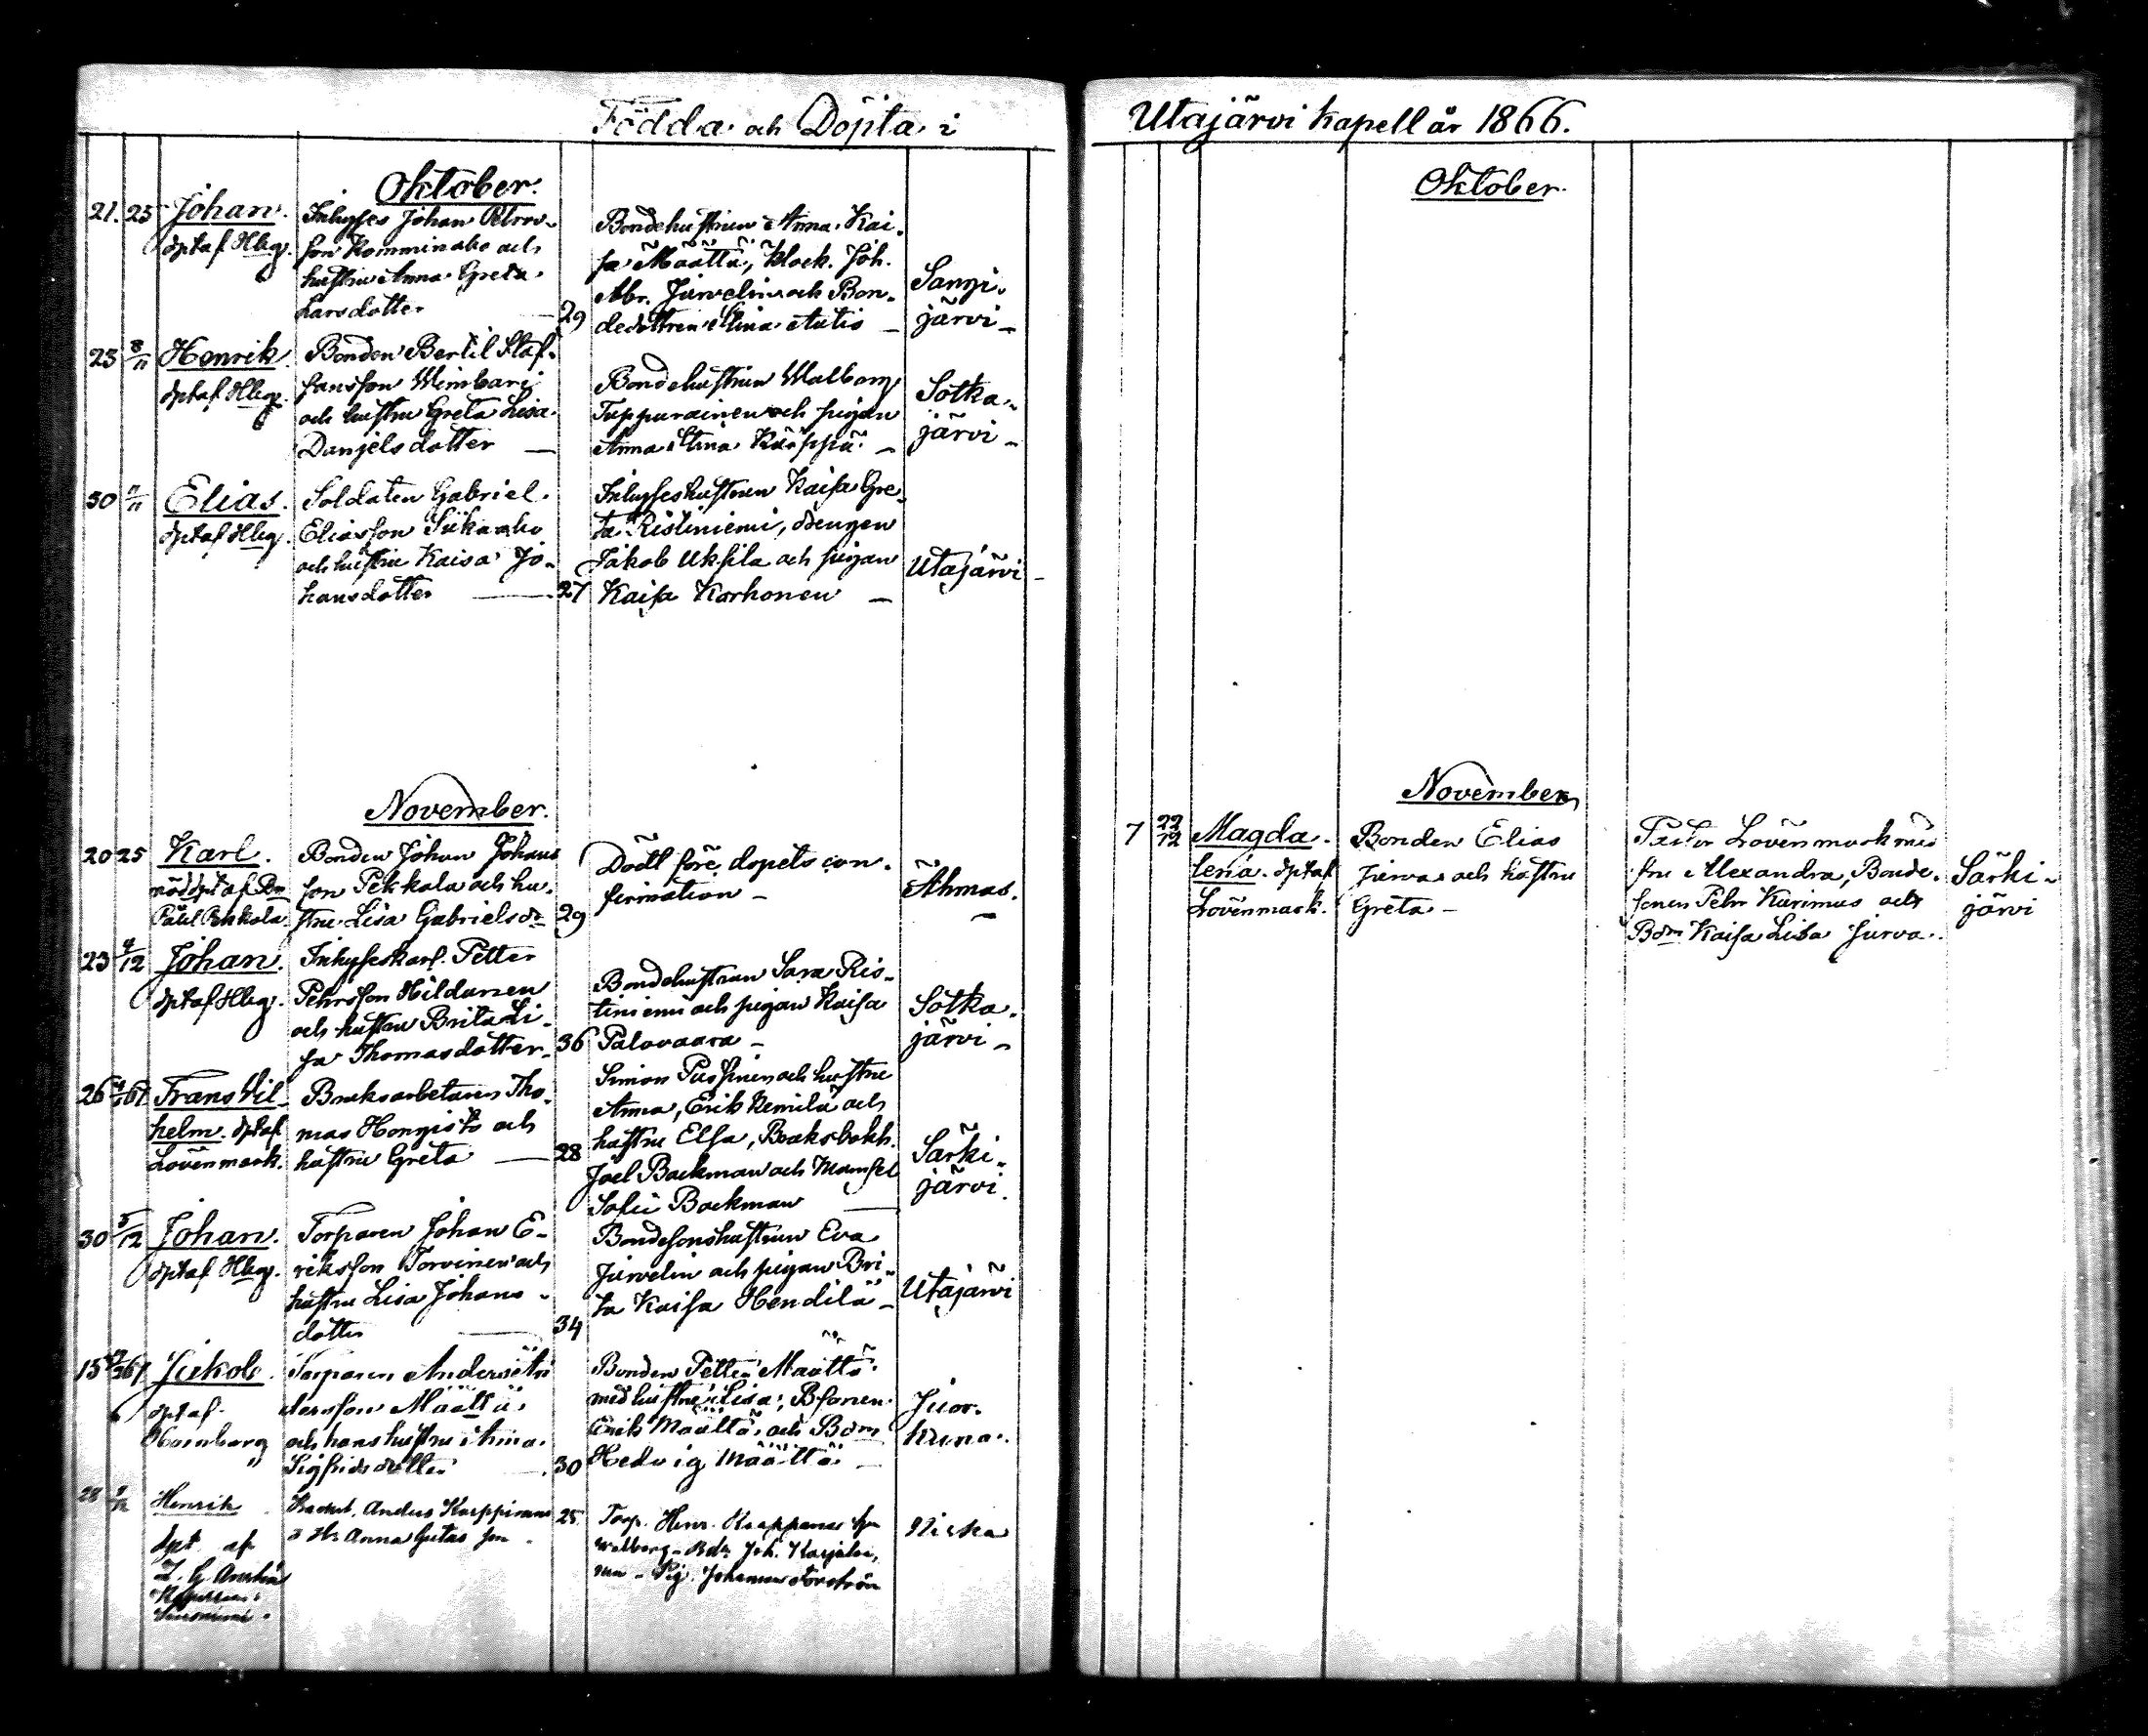 Födda och Döpta i
Oktober.
21. 25 Johan.
döpt af Hbg.
Inhyses Johan Petters-
son Komminaho och
hustru Anna Greta
Larsdotter — 29
Bondehustrun Anna Kai-
sa Määttä, Klock. Joh.
Abr. Jurvelin och Bon-
dedottren Stina —
Sangi-
järvi —
23 8/11 Henrik.
döpt af Hbg.
Bonden Bertil Staf-
fansson Wimbari
och hustru Greta Lisa
Danjelsdotter —
Bondehustrun Walborg
Tuppurainen och pigan
Anna Stina Käsppä —
Sotka-
järvi —
30 11/11 Elias.
döpt af Hbg.
Soldaten Gabriel
Eliasson Siikaaho
och hustru Kaisa Jo-
hansdotter — 27
Inhyseshustrun Kaisa Gre-
ta Ristiniemi, drengen
Jakob Uksila och pigan
Kaisa Korhonen —
Utajärvi —
November.
20 25 Karl.
nöddöpt af Bdn
Påhl Pekkala
Bonden Johan Johans
son Pekkala och hu-
stru Lisa Gabrielsdr 29
Dödt före dopets con-
firmation —
Ahmas.
23 4/12 Johan.
döpt af Hbg.
Inhyseskarl. Petter
Pehrsson Hildunen
och hustru Brita Li-
sa Thomasdotter — 36
Bondehustrun Sara Ris-
tiniemi och pigan Kaisa
Palovaara —
Sotka-
järvi —
26 67 Frans Vil-
helm. döpt af
Lovenmark.
Bruksarbetaren Tho-
mas Hongisto och
hustru Greta — 28
Simon Pussinen och hustru
Anna, Erik Kemilä och
hustru Elsa, Bruksbokh.
Joel Backman och Mamsel
Sofie Backman —
Särki-
järvi.
30 5/12 Johan.
döpt af Hbg.
Torparen Johan E-
riksson Torvinen och
hustru Lisa Johans-
dotter — 34
Bondesonshustrun Eva
Jurvelin och pigan Bri-
ta Kaisa Hendilä —
Utajärvi
15 67 Jakob.
döpt af
Hornborg
Torparen Anders An
dersson Määttä
och hans hustru Anna
Sigfridsdotter — 30
Bonden Petter Määttä
med hustru Lisa, Bsonen
Erik Määttä och Bdm
Hedvig Määttä —
Juor-
kuna.
28 Henrik
dpt af
Anders Karppinens
o Hr Anna Gretas son 25
Torp. Henr. Karppanen hu
Walborg — Bdr Joh. Karjalai
nen — Pig. Johanna
Niska
Utajärvi kapell år 1866.
Oktober.
November
7 22/12 Magda-
lena. döpt af
Lovenmark.
Bonden Elias
Jurva och hustru
Greta —
Pastor Lovenmark med
fru Alexandra, Bonde-
sonen Pehr Kurimus och
Bdm Kaisa Lisa Jurva.
Särki-
järvi